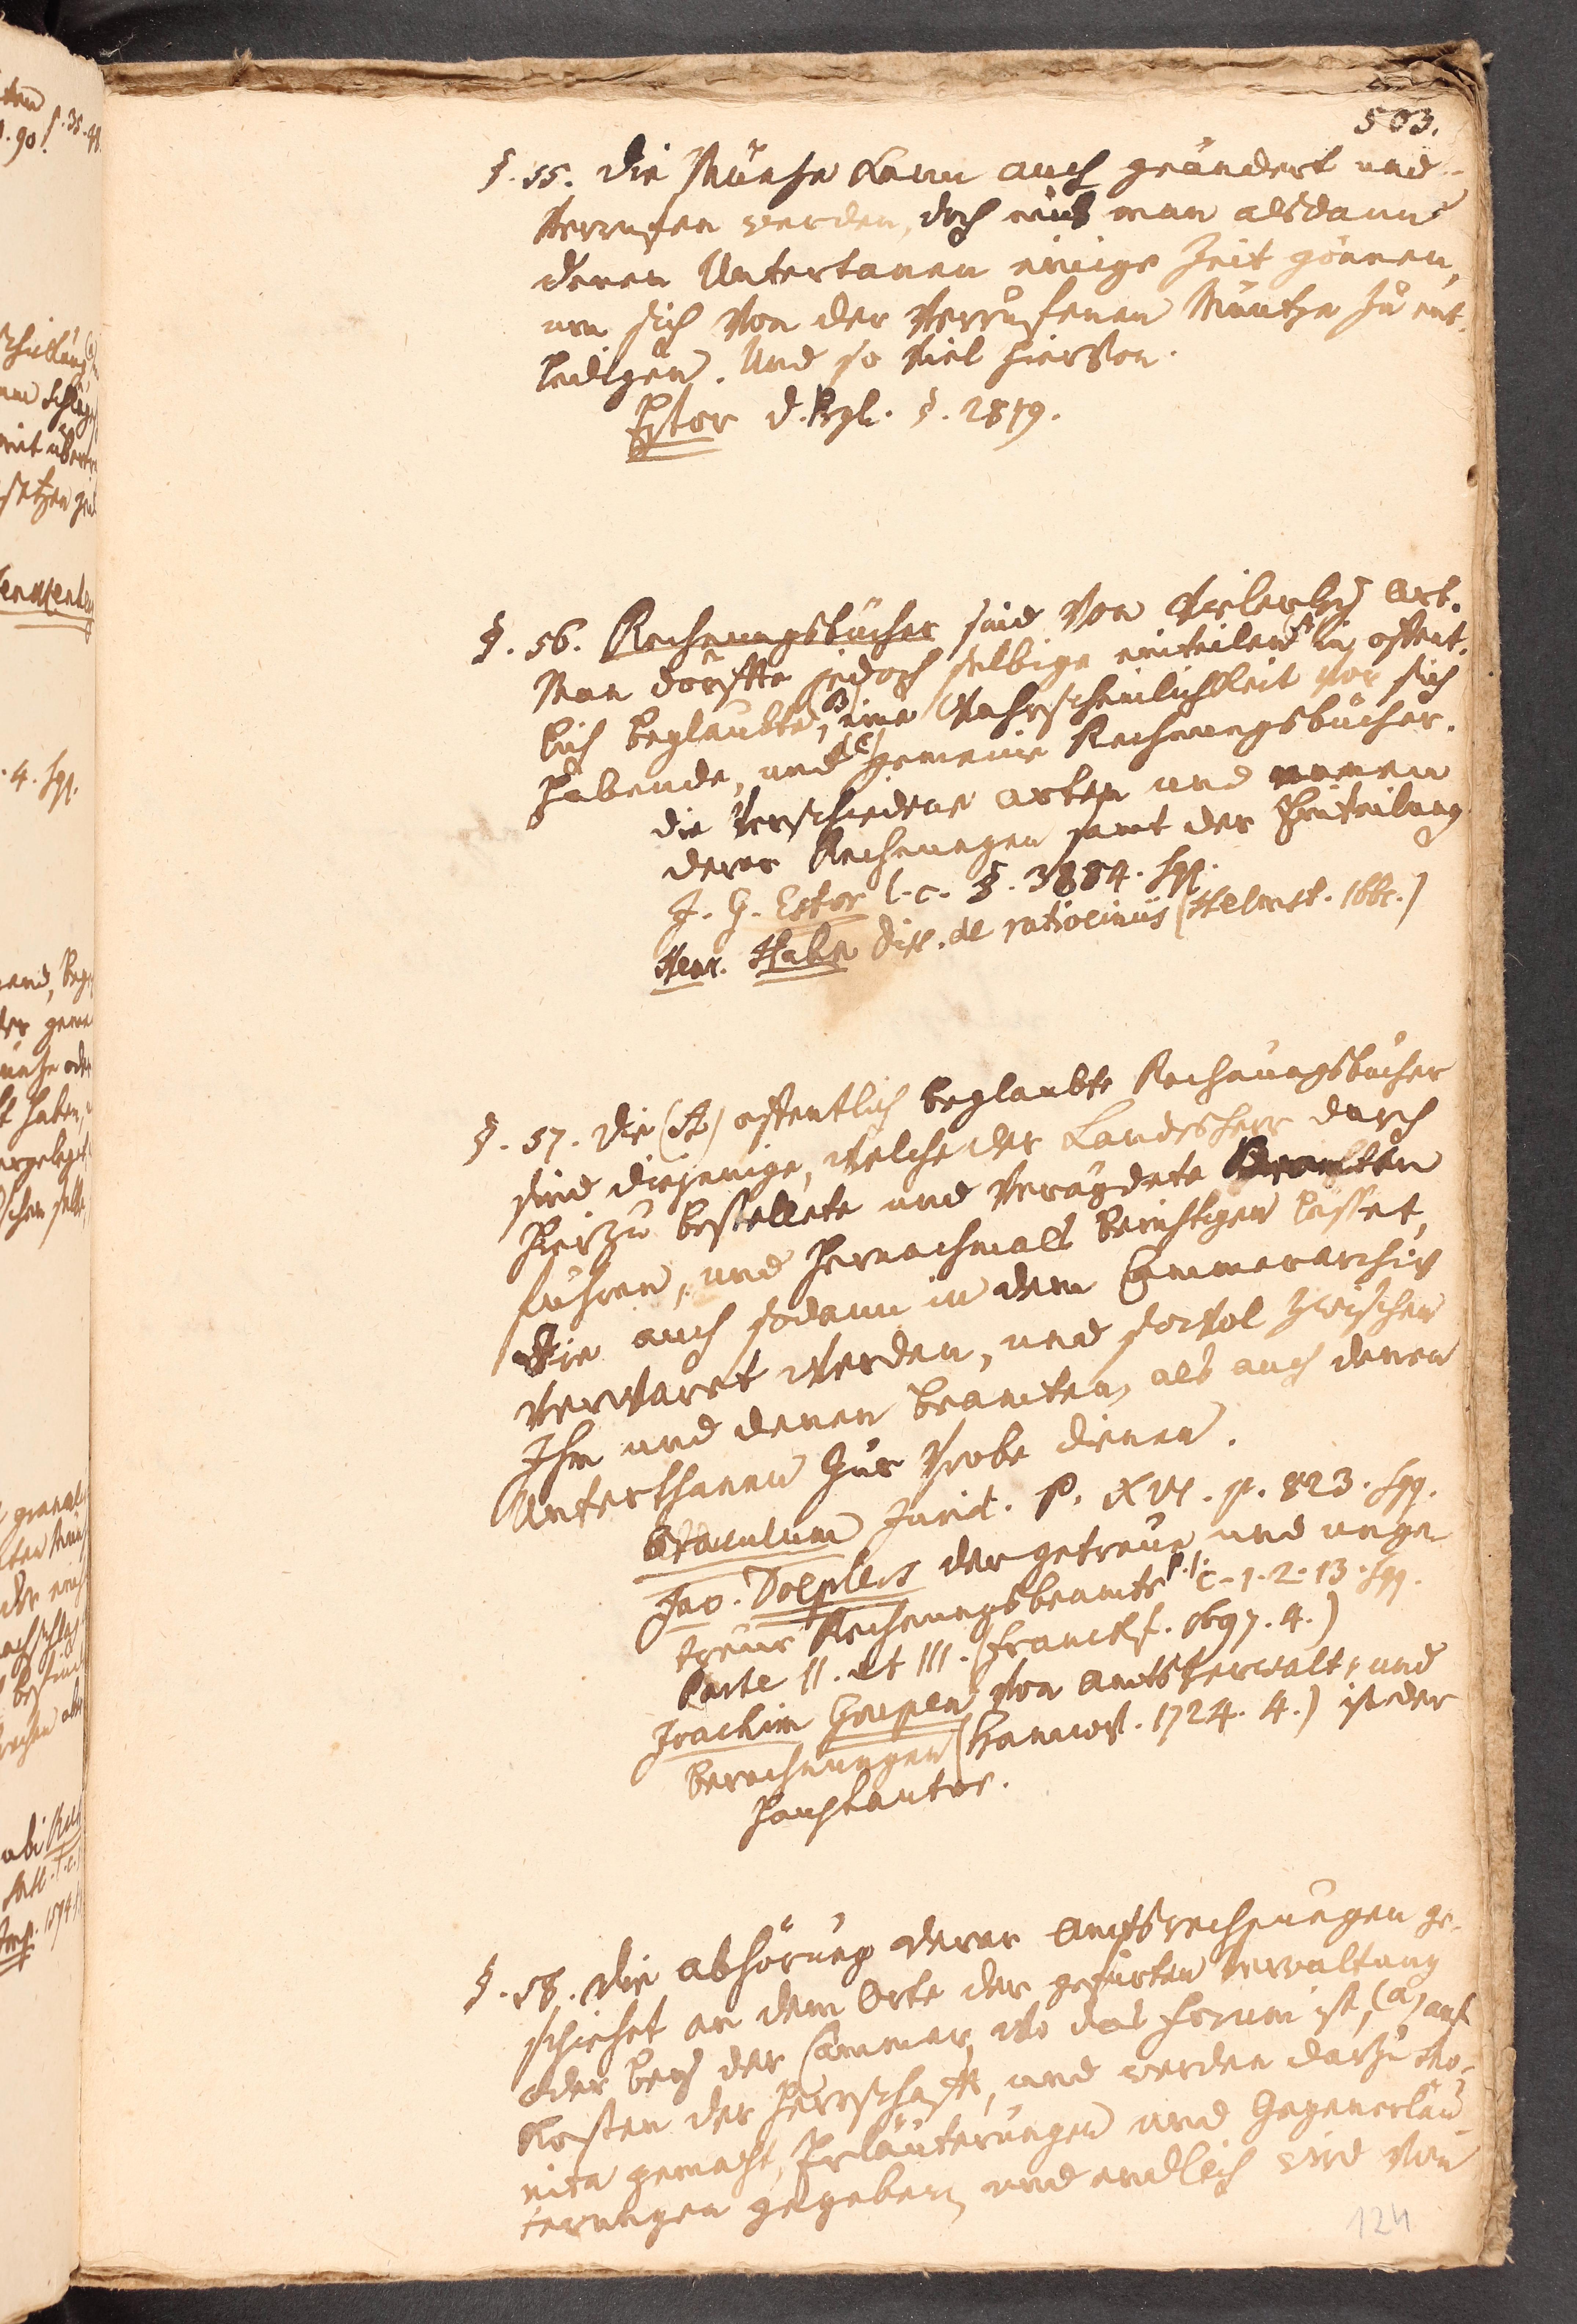 503.
§. 55. die Müntze kann auch geändert und
verrufen werden, doch mus man alsdann
denen Untertanen einige Zeit gönnen,
um sich von der verrufenen Müntze zu ent-
ledigen. Und so viel hiervon.
Estor d. Rgl. §. 2879.
§. 56. Rechnungsbücher sind von vielerley Art.
Man dörffte jedoch selbige einteilen in A) offent-
lich beglaubte, B) eine Wahrscheinlichkeit vor sich
habende, und C) gemeine Rechnungsbücher.
die verschiedene arten und namen
derer Rechnungen samt der Einteilung
J. G. Estor l. c. §. 3884. sqq.
Henr. Hahn Diss. de ratiociniis (Helmst. 166.)
§. 57. die (A) offentlich beglaubte Rechnungsbücher
sind diejenige, welche der Landesherr durch
hierzu bestellete und veraydete Beamten
führen, und hernachmals berichtigen lässet,
die auch sodann in dem Cammerarchiv
verwaret werden, und sowol zwischen
Ihm und denen beamten, als auch denen
Unterthanen zur Probe dienen.
Oraculum Jurid. P. XVI. p. 823. sqq.
Jac. Doeplers der getreue und unge-
treue Rechnungsbeamte P. I. c. 1. 2. 13. sqq.
Parte II. et III. (Franckf. 1697. 4.)
Joachim Georg von Amtsverwalt- und
berechnungen (Hannov. 1724. 4.) ist der
Hauptautor.
§. 58. die abhörung derer Amtsrechnungen ge-
schiehet an dem Orte der gefürten Verwaltung
oder bey der Cammer, wo das Forum ist, (a) auf
Kosten der Herrschafft, und werden darzu Mo-
nita gemacht, Erläuterungen und Gegenerläu-
terungen gegeben, und endlich wird von
124